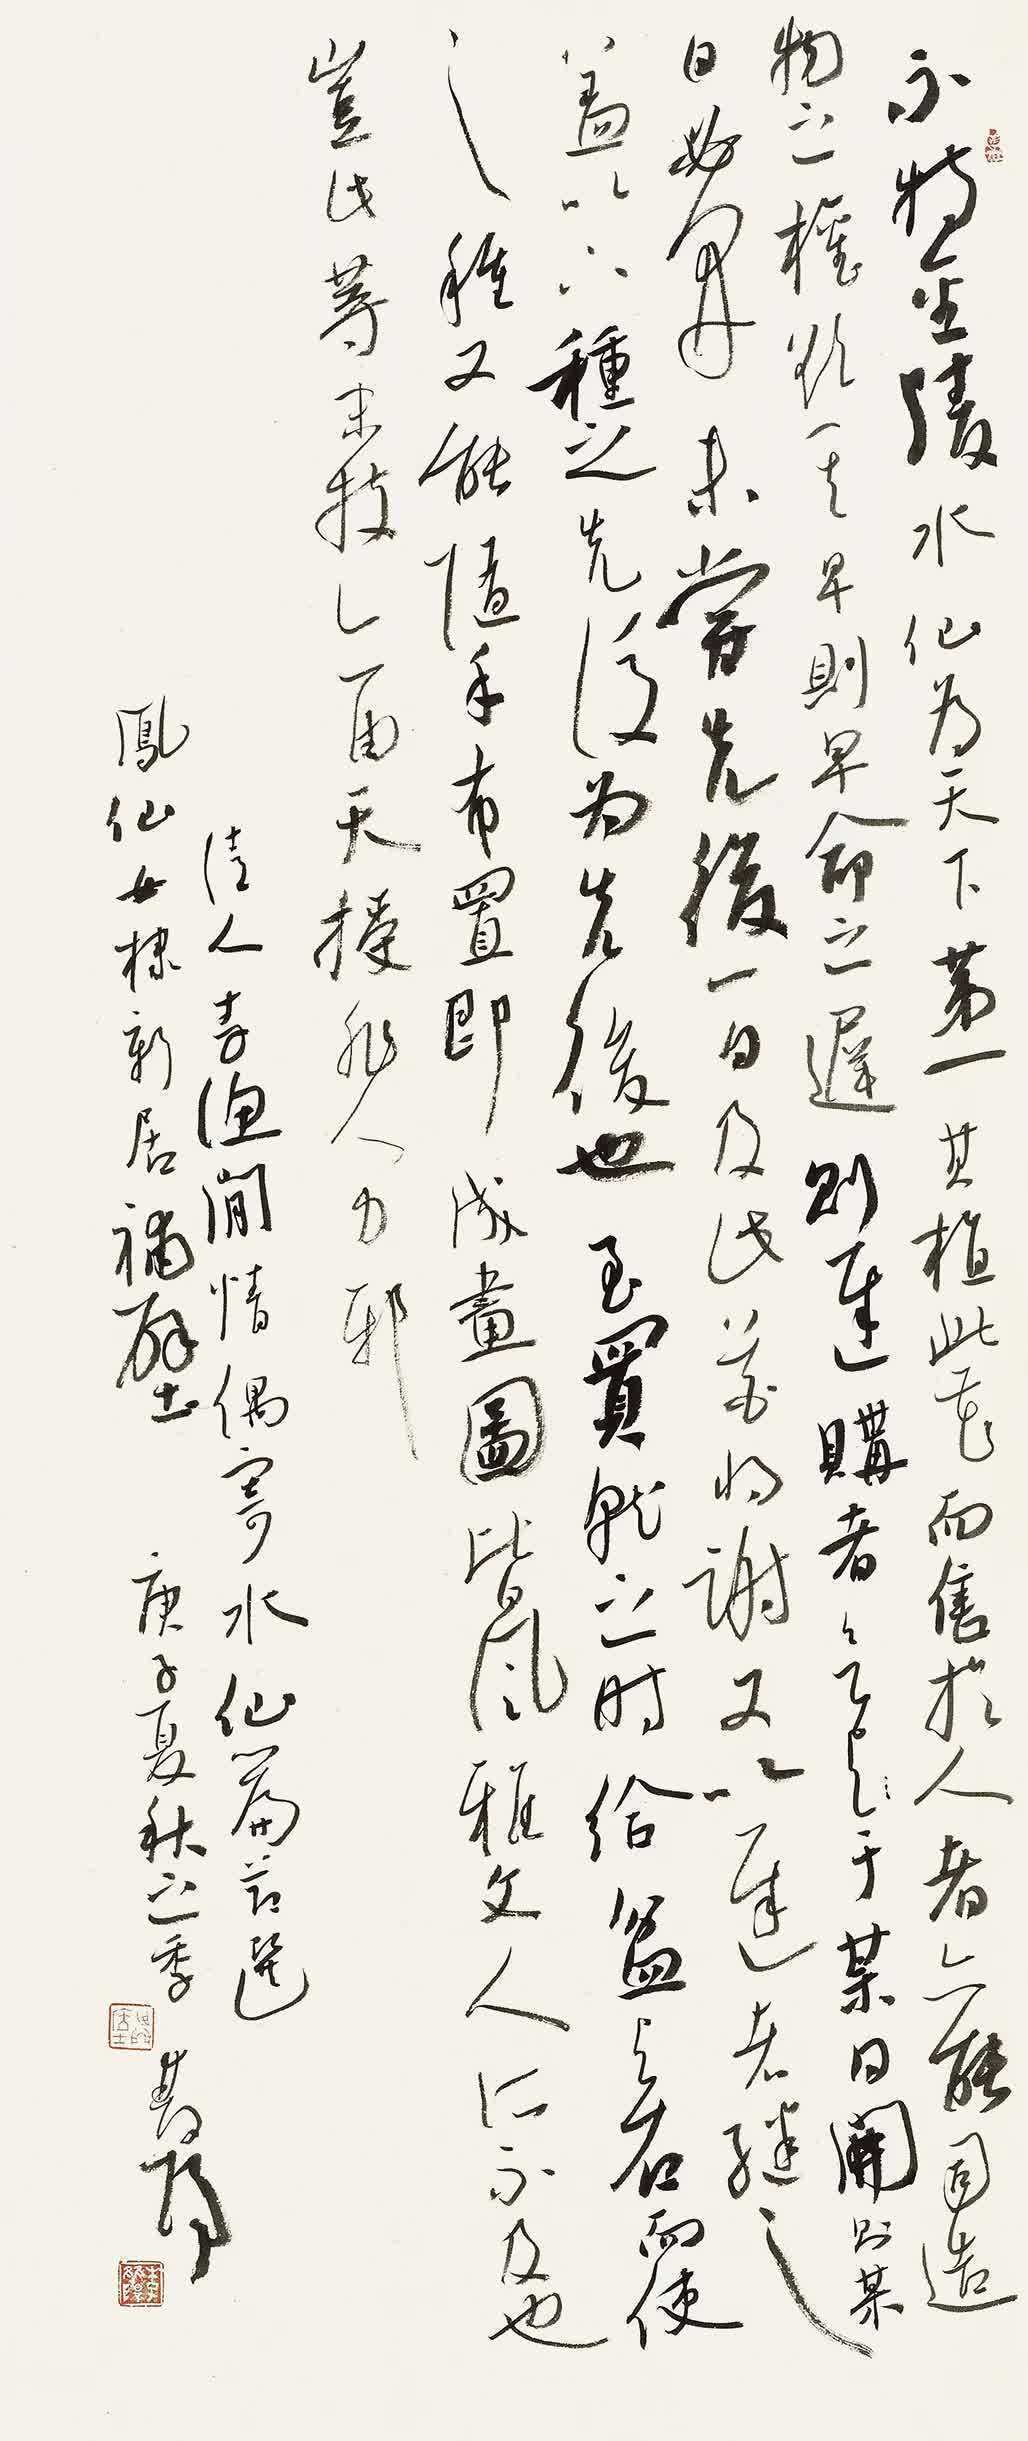 不特金陵水仙為天下第一其植此花而售於人者亦能司造
物之權欲其早則早命之遲則遲購者于某日開則某
日必開未嘗先後一日及此花將謝又以遲者繼之
蓋以下種之先後為先後也至買就之时給盆与石而使
之種又能隨手布置即成畫圖皆風雅文人所不及也
豈此等末技亦由天授非人力邪
清人李漁閒情偶寄水仙篇節選
鳳仙女棣新居補壁 庚子夏秋之季